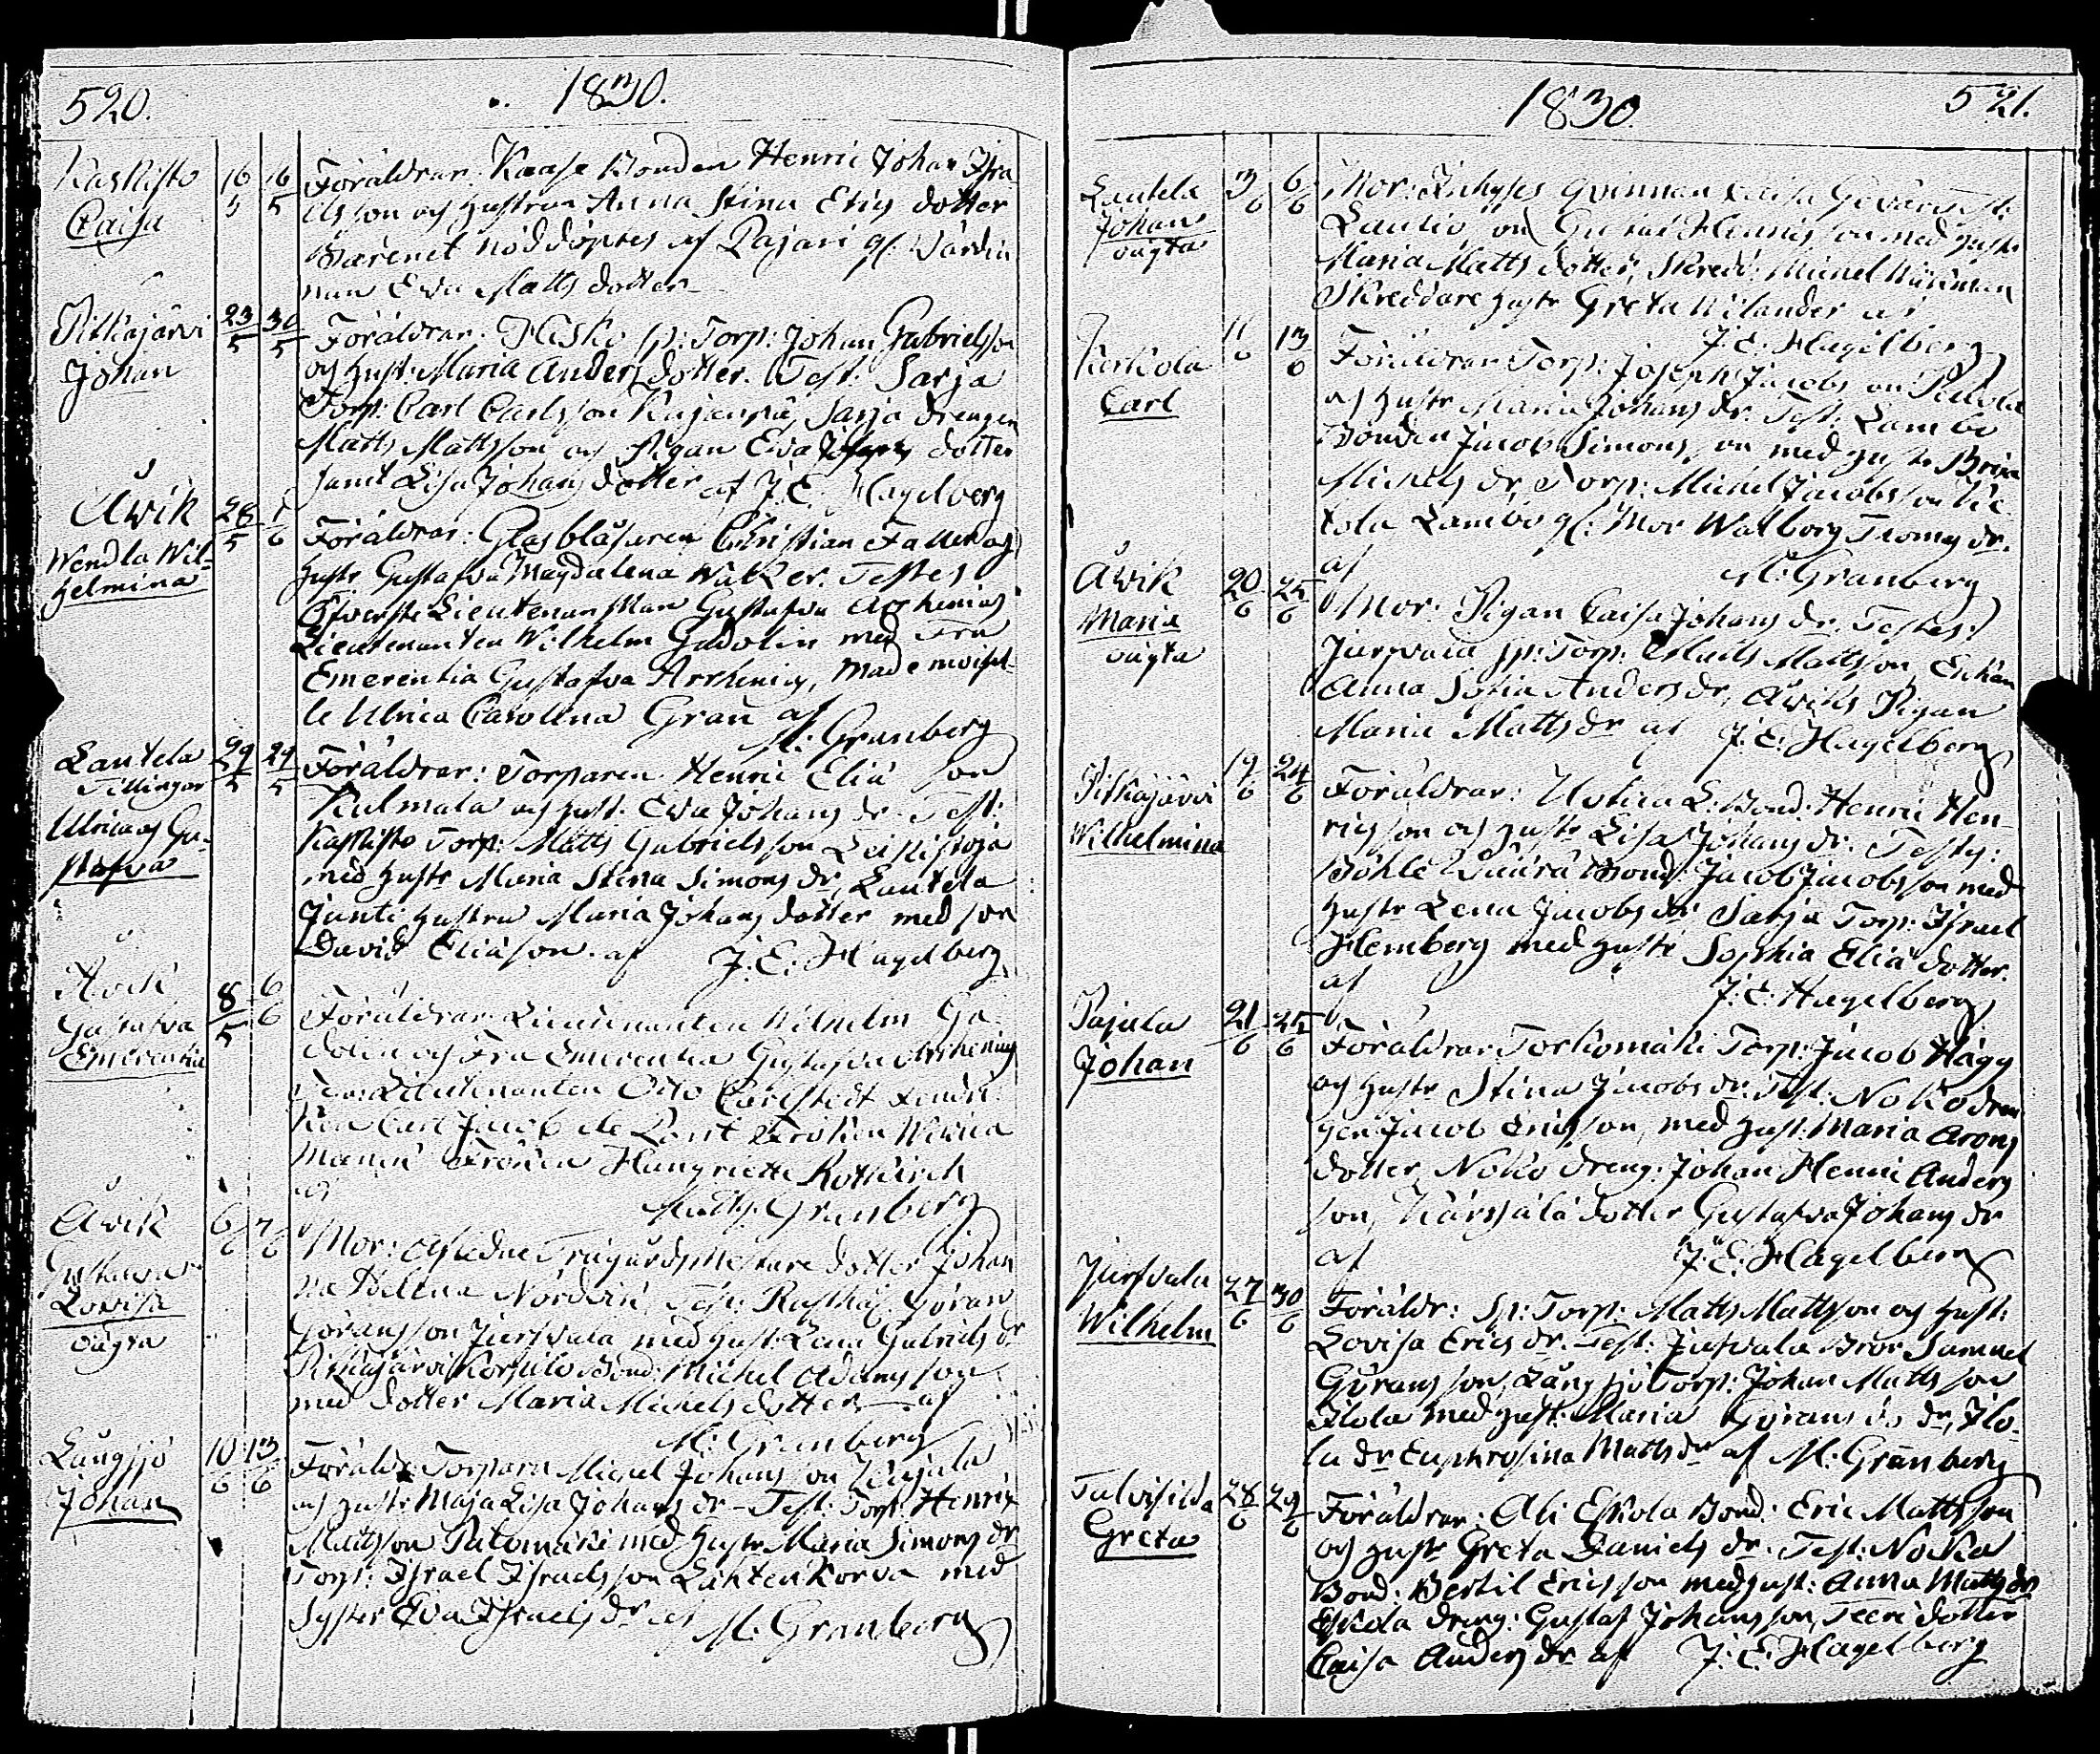 520.
1830.
Kaskisto
Caisa
16/5
16/5
Föräldrar: Kaase Bonden Henric Johan Isra
elsson och hustrun Anna Stina Erics dotter
Barenet nöddöptes af Pajari gl: Värdin
nan Eva Matts dotter
Pitkäjärvi
Johan
23/5
30/5
Föräldrar: Hisko sp: Torp: Johan Gabrielsson
och hust: Maria Anders dotter. Test: Sarja
Torp: Carl Carlsson Sarja Drengen
Matts Mattsson och Pigan Eva Josephs dotter
samt Lisa Johans dotter af J. E. Hagelberg
Åwik
Wendla Wil-
helmina
28/5
1/6
Föräldrar: Glasblåsaren Christian Faller och
hustr Gustafva Magdalena Walker. Testes
Öfverste Lieutenanskan Gustafva Arrhenius
Lieutenanten Wilhelm Gadolin med Fru
Emerentia Gustafva Arrhenius, Mademoisel-
le Ulrica Carolina Gran af
M: Granberg
Lautela
Tillingar
Ulrica och Gu-
stafva
29/5
29/5
Föräldrar: Torparen Henric Elia son
Kulmala och hust: Eva Johans dr. Test:
Kaskisto Torp: Matts Gabrielsson Leikkisoja
med hustr Maria Stina Simons dr, Lautela
Junti hustru Maria Johans dotter med son
David Eliason. af J. E: Hagelberg
Åvik
Gustafva
Emerentia
8/5
6/6
Föräldrar Lieutenanten Wilhelm Ga-
dolin och Fru Emerentia Gustafva Arrhenius
Test: Lieutenanten Otto Carlstedt
Carl Jacob de Pont Fröken
Fröken Rotkirch
af
Matths: Granberg
Åwik
Gustava
Lovisa
oägta
6/6
7/6
Mor: Afledne Trägårdsmestare dotter Johan
na Helena Nordvin, Test: Rusthåll: Göran
Göransson Jursvala med hust: Lena Gabriels dr
Pitkäjärvi Korsulo Bond: Michel Adamsson
med dotter Maria Michels dotter af
M: Granberg
Långsjö
Johan
10/6
13/6
Föräldr: Torparn Michel Johansson
och hustr Maja Lisa Johans dr - Test: Torp: Henric
Mattsson Palomäki med hustr Maria Simons dr
Torp: Israel Israelsson Lähtenkorva med
Syster Eva Israels dr af M. Granberg
1830
521.
Lautela
Johan
oägta
3/6
6/6
Mor: Inhyses Qvinnan Caisa
Lautio med hustr
Maria Matts dotter, Skredd: Michel
Skreddare hustr Greta Wilander af
J. E. Hagelberg
Kerkola
Carl
11/6
13/6
Föräldrar Torp: Joseph Jacobs on
och hustr Maria Johans dr. Test: Lambo
Bonden Jacob Simons on med hustr Brita
Michels dr, Torp: Michel Jacobsson
Lambo gl: Mor Walborg Thomas dr.
af
M: Granberg
Åwik
Maria
oägta
20/6
25/6
Mor: Pigan Caisa Johans dr. Testes:
Jursvala sp: Torp: Matts Mattsson Enkan
Anna Sofia Anders dr, Åwiks Pigan
Maria Matts dr af J. E: Hagelberg
Pitkäjärvi
Wilhelmina
19/6
24/6
Föräldrar: Uotila L: Bond: Henric Hen-
ricsson och hustr Lisa Johans dr. Testes:
Böhle Bond: Jacob Jacobsson med
hustr Lena Jacobs dr Sarja Torp: Israel
Hemberg med hustr Sophia Elia dotter.
af
J. E: Hagelberg
Pajula
Johan
21/6
25/6
Föräldrar Torkomäki Torp: Jacob Hägg
och hustr Stina Jacobs dr. Test: Noko dren
gen Jacob Ericsson, med hust: Maria Arons
dotter, Noko dreng: Johan Henric Anders
son, Kärsälä dotter Gustafva Johans dr
af
J. E: Hagelberg
Jursvala
Wilhelm
27/6
30/6
Föräldr: Sp: Torp: Matts Mattsson och hust:
Lovisa Erics dr. Test: Jursvala Bror Samuel
Göransson, Långsjö Torp: Johan Matts son
Ilola med hust: Maria Görans dr, Ilo-
la dr Euphrosina Matts dr af M: Granberg
Talvisilda
Greta
28/6
29/6
Föräldrar: Ali Eskola Bond: Eric Mattsson
och hustr Greta Daniels dr. Test: Noka
Bond: Bertil Ericsson med hust: Anna Matts dr
Eskola dreng: Gustaf Johansson, Teeri dotter
Caisa Anders dr af J: E: Hagelberg